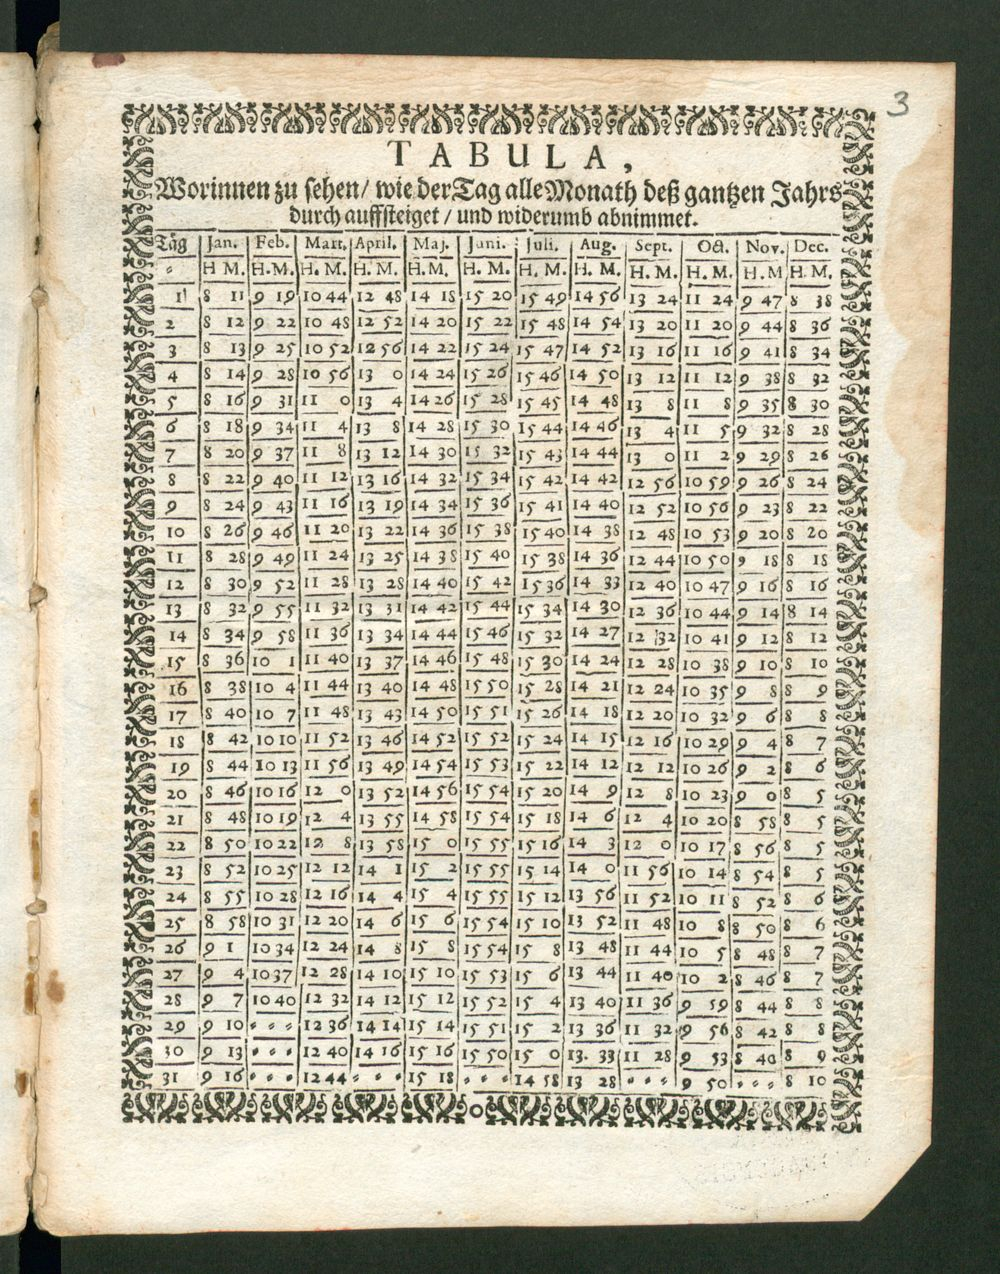 3
TABULA,
Worinnen zu sehen/ wie der Tag alle Monath deß gantzen Jahrs
durch auffsteiget / und widerumb abnimmet.
Täg Jan. Feb. Mart. April. Maj. Juni. Juli. Aug. Sept. Oct. Nov. Dec.
" H M. H. M. H. M. H. M. H. M. H. M. H. M. H. M. H. M. H. M. H. M H. M.
1 8 11 9 19 10 44 12 48 14 18 15 20 15 49 14 56 13 24 11 24 9 47 8 38
2 8 12 9 22 10 48 12 52 14 20 15 22 15 48 14 54 13 20 11 20 9 44 8 36
3 8 13 9 25 10 52 12 56 14 22 15 24 15 47 14 52 13 16 11 16 9 41 8 34
4 8 14 9 28 10 56 13 0 14 24 15 26 15 46 14 50 13 12 11 12 9 38 8 32
5 8 16 9 31 11 0 13 4 14 26 15 28 15 45 14 48 13 8 11 8 9 35 8 30
6 8 18 9 34 11 4 13 8 14 28 15 30 15 44 14 46 13 4 11 5 9 32 8 28
7 8 20 9 37 11 8 13 12 14 30 15 32 15 43 14 44 13 0 11 2 9 29 8 26
8 8 22 9 40 11 12 13 16 14 32 15 34 15 42 14 42 12 56 10 59 9 26 8 24
9 8 24 9 43 11 16 13 19 14 34 15 36 15 41 14 40 12 52 10 56 9 23 8 22
10 8 26 9 46 11 20 13 22 14 36 15 38 15 40 14 38 12 48 10 53 9 20 8 20
11 8 28 9 49 11 24 13 25 14 38 15 40 15 38 14 36 12 44 10 50 9 18 8 18
12 8 30 9 52 11 28 13 28 14 40 15 42 15 36 14 33 12 40 10 47 9 16 8 16
13 8 32 9 55 11 32 13 31 14 42 15 44 15 34 14 30 12 36 10 44 9 14 8 14
14 8 34 9 58 11 36 13 34 14 44 15 46 15 32 14 27 12 32 10 41 9 12 8 12
15 8 36 10 1 11 40 13 37 14 46 15 48 15 30 14 24 12 28 10 38 9 10 8 10
16 8 38 10 4 11 44 13 40 14 48 15 50 15 28 14 21 12 24 10 35 9 8 8 9
17 8 40 10 7 11 48 13 43 14 50 15 51 15 26 14 18 12 20 10 32 9 6 8 8
18 8 42 10 10 11 52 13 46 14 52 15 52 15 24 14 15 12 16 10 29 9 4 8 7
19 8 44 10 13 11 56 13 49 14 54 15 53 15 22 14 12 12 12 10 26 9 2 8 6
20 8 46 10 16 12 0 13 52 14 56 15 54 15 20 14 9 12 8 10 23 9 0 8 5
21 8 48 10 19 12 4 13 55 14 58 15 54 15 18 14 6 12 4 10 20 8 58 8 5
22 8 50 10 22 12 8 13 58 15 0 15 55 15 16 14 3 12 0 10 17 8 56 8 5
23 8 52 10 25 12 12 14 1 15 2 15 55 15 14 14 0 11 56 10 14 8 54 8 5
24 8 55 10 28 12 16 14 4 15 4 15 55 15 12 13 56 11 52 10 11 8 52 8 6
25 8 58 10 31 12 20 14 6 15 6 15 54 15 10 13 52 11 48 10 8 8 50 8 6
26 9 1 10 34 12 24 14 8 15 8 15 54 15 8 13 48 11 44 10 5 8 48 8 7
27 9 4 10 37 12 28 14 10 15 10 15 53 15 6 13 44 11 40 10 2 8 46 8 7
28 9 7 10 40 12 32 14 12 15 12 15 52 15 4 13 40 11 36 9 59 8 44 8 8
29 9 10 " " " 12 36 14 14 15 14 15 51 15 2 13 36 11 32 9 56 8 42 8 8
30 9 13 " " " 12 40 14 16 15 16 15 50 15 0 13. 33 11 28 9 53 8 40 8 9
31 9 16 " " " 12 44 " " " 15 18 " " " 14 58 13 28 " " " 9 50 " " " 8 10